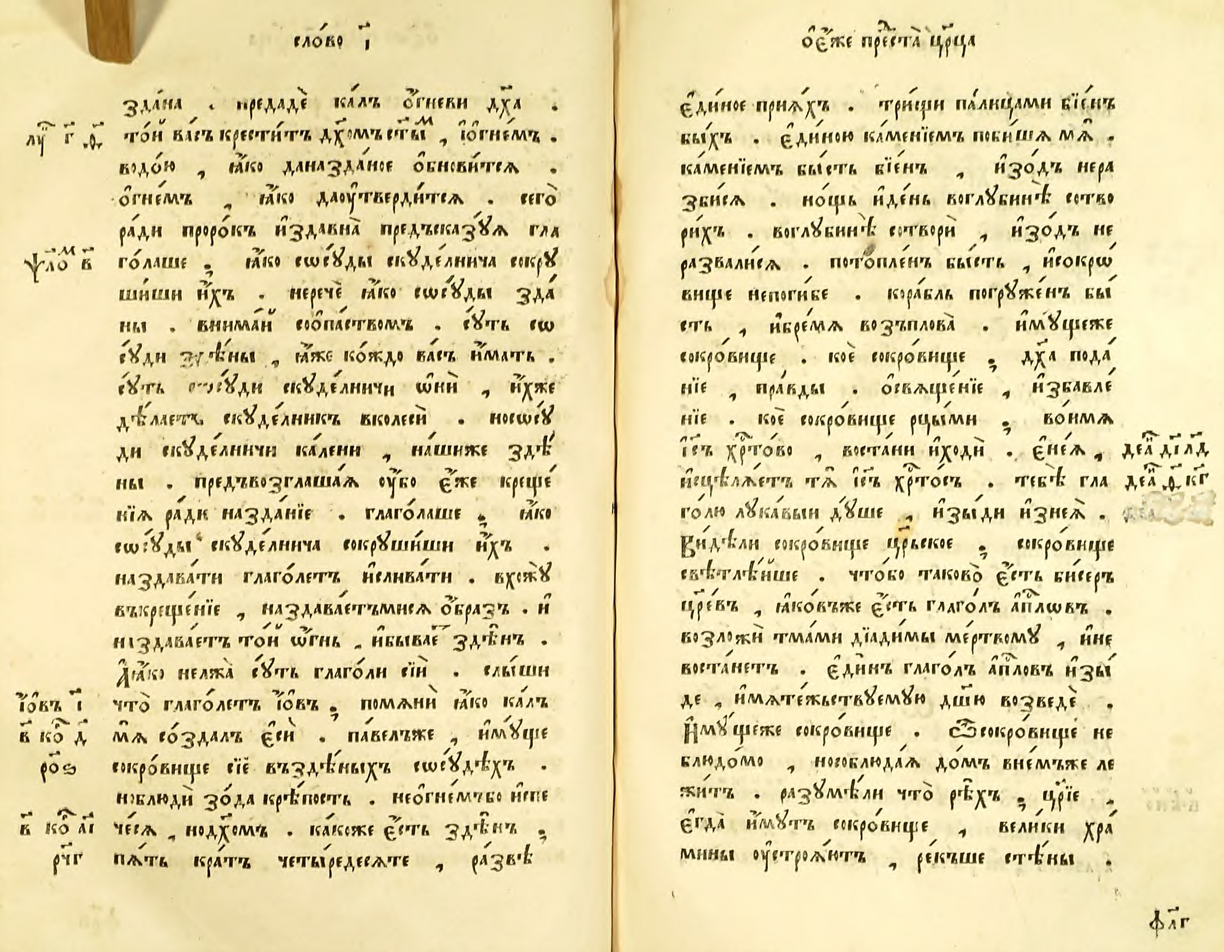 сло́во і҃
зда́на . предадѐ ка́лъ ѻ҆гневи дх҃а .
лꙋ̑ г҃ .ѳ҃.
то́й ва́съ крести́тъ дх҃омъ ст҃ы́м , ѝѻ҆гне́мъ .
водо́ю , ꙗ҆́ко даназда́ное ѻ҆бнови́тсѧ .
ѻ҆гне́мъ , ꙗ҆́ко даоу҆тверди́тсѧ . сего̀
ра́ди проро́къ и҆здавна̀ предъсказꙋ́ѧ гла
ѱало́м в҃
го́лаше ; ꙗ҆́ко сѡсꙋ́ды скꙋде́лнича сокрꙋ
ши́ши и҆́хъ . нерече̏ ꙗ҆́ко сѡсꙋ́ды зда́
ны . внима́й соѻ҆па́ствомъ . сꙋ́ть сѡ
сꙋ́ди здѣ́ны , ꙗ҆́же ко́ждо ва́съ и҆́мать .
сꙋ́ть сосꙋ́ди скꙋде́лничи ѡ҆нѝ , и҆́хже
дѣ́лаетъ скꙋде́лникъ вколесѝ . носѡсꙋ́
ди скꙋде́лничи ка́лени , на́шиже здѣ́
ны . предъвозглаша́ѧ оу҆́бо є҆́же креще́
нїѧ ра́диназда́нїе . глаго́лаше ; ꙗ҆́ко
сѡсꙋ́ды скꙋде́лнича сокрꙋши́ши и҆́хъ .
наздава́ти глаго́летъ и҆слива́ти . вхожꙋ̀
въкреще́нїе , наздава́етъмисѧ ѻ҆́бразъ . и҆
наздава́етъ то́й ѻ҆́гнь , и҆быва́е здѣ́нъ .
А҆ꙗ҆́ко нелжа̀ сꙋ́ть глаго́ли сїѝ . слы́ши
і҆́ѡвъ і҃
что̀ глаго́летъ і҆́ѡвъ ; помѧнѝ ꙗ҆́ко ка́лъ
в҃ ко д҃
мѧ̀ со́здалъ є҆сѝ . па́велъже , и҆мꙋ́ще
рѻ҃ѕ
сокро́вище сїѐ въздѣ́ныхъ сѡсꙋ́дѣхъ .
и҆блюдѝ зо́да крѣ́пость . неѻ҆гне́мъбо и҆спе
в҃ ко а҃і
че́сѧ , нодх҃омъ . ка́коже є҆́сть здѣ́нъ ;
рч҃г
пѧ́ть кра́тъ четы́редесѧте , ра́звѣ
ѻ҆є҆́же прест҃а̀ цр҃ца
є҆ди́ное прїѧ́хъ . три́щи па́лицами бїе́нъ
бы́хъ . є҆ди́ною ка́менїемъ поби́шѧ мѧ̀ .
ка́менїемъ бы́сть бїе́нъ , и҆зо́дъ нера
зби́сѧ . но́щь и҆де́нь воглꙋбинѣ̀ сотво
ри́хъ . воглꙋбинѣ̀ сотворѝ , и҆зо́дъ не
развали́сѧ . потопле́нъ бы́сть , и҆сокрѡ́
вище непоги́бе . кора́бль погрꙋже́нъ бы́
сть , и҆бре́мѧ возъплова̀ . и҆мꙋ́щеже
сокро́вище . коѐ сокро́вище ; дх҃а пода́
нїе , пра́вды . ѻ҆свѧще́нїе , и҆збавле́
нїе . коѐ сокро́вище рцы́ми ; во́имѧ
деѧ̑ д҃і л҃д
і҆с҃ъ хр҃то́во , воста́ни и҆ходѝ . є҆не́ѧ ,
деѧ̑ .ѳ҃. к҃г
и҆сцѣлѧ́етъ тѧ̀ і҆с҃ъ хр҃то́съ . тебѣ̀ гла
го́лю лꙋка́выи дꙋ́ше , и҆зы́ди и҆знеѧ̀ .
Ви́дѣли сокро́вище цр҃ьское ; сокро́вище
свѣтлѣ́йше . что́бо таково̀ є҆́сть би́серъ
цр҃евъ , ꙗ҆ко́въже є҆́сть глаго́лъ а҆пл҃ѡвъ .
возложѝ тма́ми дїади́мы ме́ртвомꙋ , и҆не
воста́нетъ . є҆ди́нъ глаго́лъ а҆пл҃овъ и҆зы́
де , и҆мѧте́жьствꙋемꙋю дш҃ю возведѐ .
И҆мꙋ́щеже сокро́вище . Ѿсокро́вище не
блюдо́мо , нособлюда́ѧ до́мъ вне́мъже ле
жи́тъ . разꙋмѣ́ли что̀ рѣ́хъ ; цр҃їе ,
є҆гда̀ и҆́мꙋтъ сокро́вище , вели́ки хра́
мины оу҆строѧ́ютъ , ре́къше стѣ́ны .
ѳл҃г